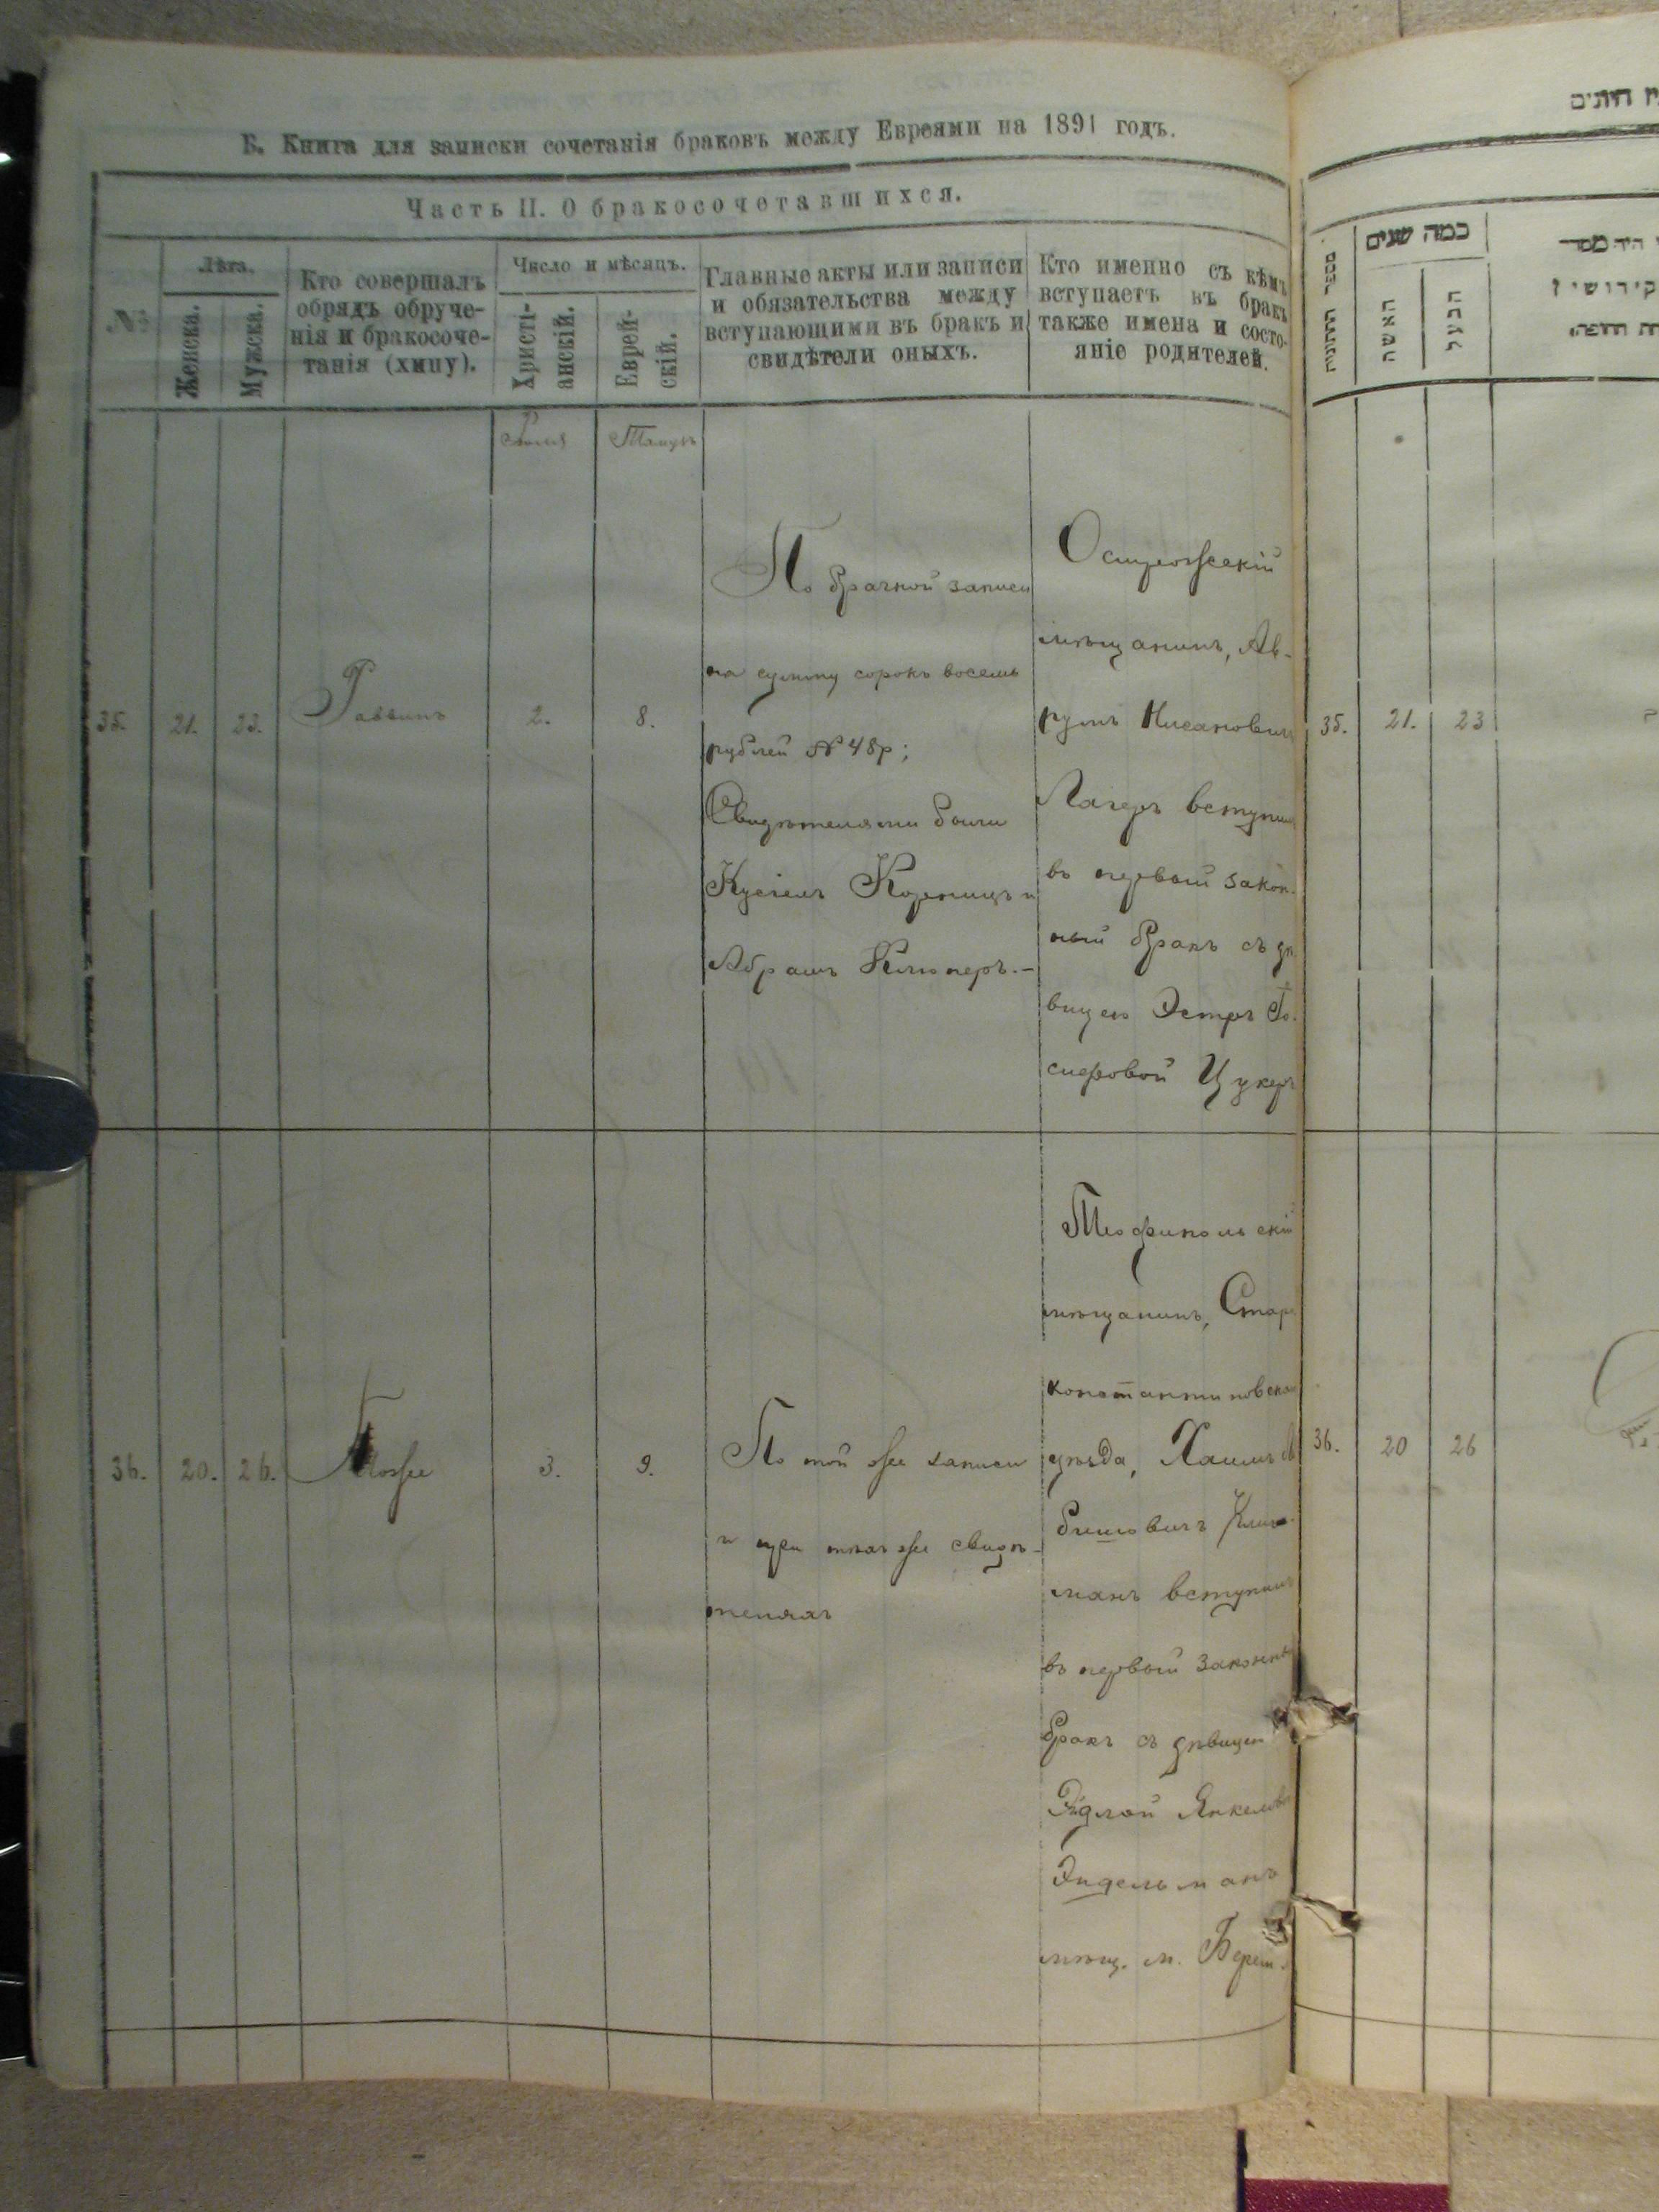 Б. Книга для записки сочетанія браковъ между Евреями на 1891 годъ.
Часть II. О бракосочетавшихся.
№
Лѣта.
Женска.
Мужска.
Кто совершалъ
обрядъ обруче-
нія и бракосоче-
танія (хипу).
Число и мѣсяцъ.
Христі-
анскій.
Еврей-
скій.
Главные акты или записи
и обязательства между
вступающими въ бракъ и
свидѣтели оныхъ.
Кто именно съ кѣмъ
вступаетъ въ бракъ
также имена и состо-
яніе родителей.
Тамузъ
35.
21.
23.
Раввинъ
2.
8.
По брачной записи
на сумму сорокъ восемь
рублей № 48р;
Свидѣтелями были
Кусіель и
Абрамъ
Острожскій
мѣщанинъ, Ав-
румъ Нисановичъ
Лагеръ вступилъ
въ первый закон-
ный бракъ съ дѣ
вицею Эстеръ Іо-
сифовой Цукеръ
36.
20.
26.
3.
9.
По той же записи
и при тѣхъ же свидѣ-
теляхъ
Теофипольскій
мѣщанинъ, Старо
константиновскаго
уѣзда, Хаимъ
вступилъ
въ первый законный
бракъ съ дѣвицей
Эйдлой Янкелев
Эйдельманъ
мѣщ. м.
כמה שנים
האשה
הבעל
35.
21.
23
36.
20
26